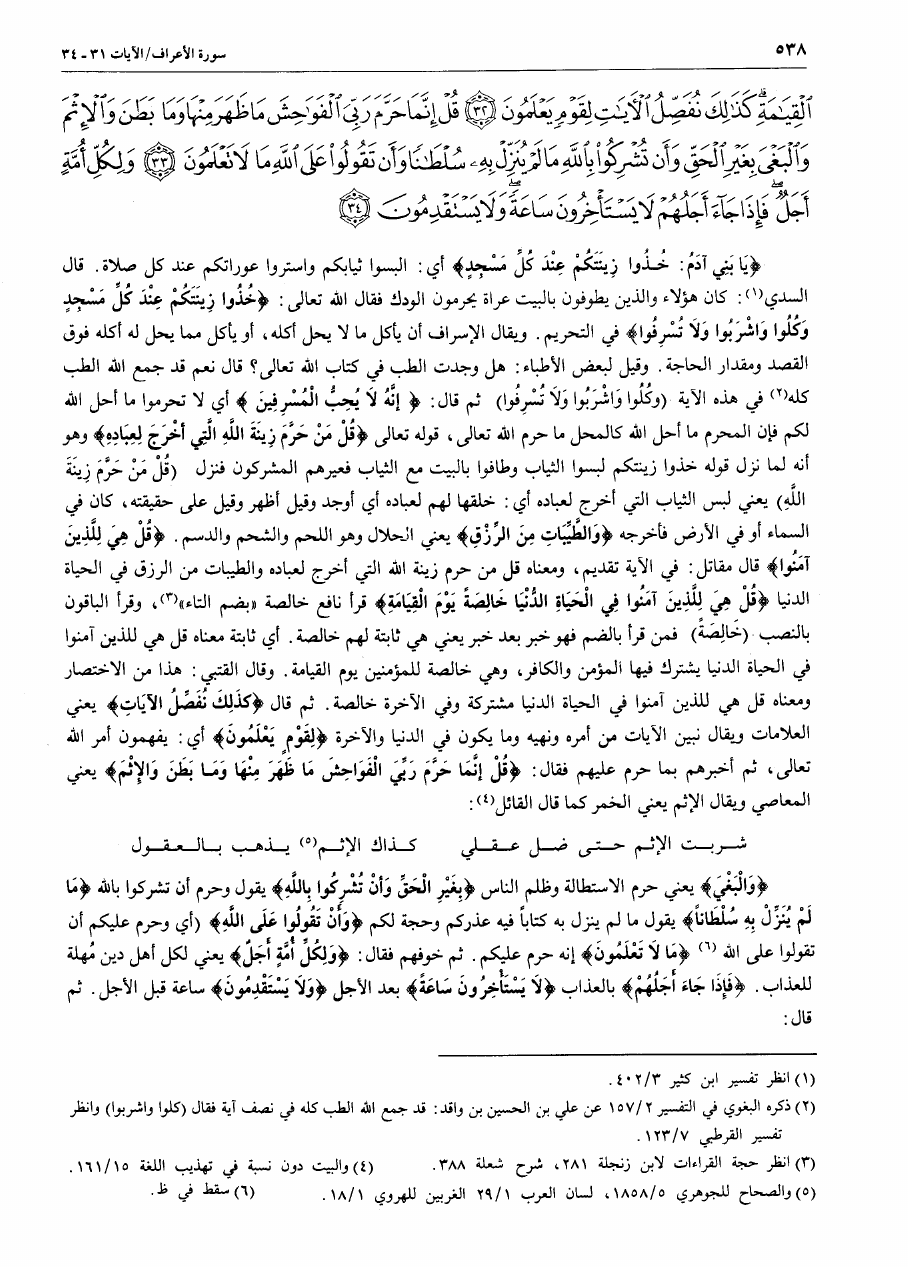 ٥٣٨ سورة الأعراف/الآيات ٣١ - ٣٤
ٱلْقِيَـٰمَةِ ۗ كَذَٰلِكَ نُفَصِّلُ ٱلْأَيَـٰتِ لِقَوْمٍ يَعْلَمُونَ ٣٢ قُلْ إِنَّمَا حَرَّمَ رَبِّيَ ٱلْفَوَٰحِشَ مَا ظَهَرَ مِنْهَا وَمَا بَطَنَ وَٱلْإِثْمَ
وَٱلْبَغْيَ بِغَيْرِ ٱلْحَقِّ وَأَن تُشْرِكُوا۟ بِٱللَّهِ مَا لَمْ يُنَزِّلْ بِهِۦ سُلْطَـٰنًا وَأَن تَقُولُوا۟ عَلَى ٱللَّهِ مَا لَا تَعْلَمُونَ ٣٣ وَلِكُلِّ أُمَّةٍ
أَجَلٌ ۖ فَإِذَا جَآءَ أَجَلُهُمْ لَا يَسْتَأْخِرُونَ سَاعَةً ۖ وَلَا يَسْتَقْدِمُونَ ٣٤
﴿يَا بَنِي آدَمَ: خُـذُوا زِينَتَكُمْ عِنْدَ كُلِّ مَسْجِدٍ﴾ أي: البسوا ثيابكم واستروا عوراتكم عند كل صلاة. قال
السدي(١): كان هؤلاء والذين يطوفون بالبيت عراة يحرمون الودك فقال الله تعالى: ﴿خُذُوا زِينَتَكُمْ عِنْدَ كُلِّ مَسْجِدٍ
وَكُلُوا وَاشْرَبُوا وَلَا تُسْرِفُوا﴾ في التحريم. ويقال الإسراف أن يأكل ما لا يحل أكله، أو يأكل مما يحل له أكله فوق
القصد ومقدار الحاجة. وقيل لبعض الأطباء: هل وجدت الطب في كتاب الله تعالى؟ قال نعم قد جمع الله الطب
كله(٢) في هذه الآية (وكُلُوا وَاشْرَبُوا وَلَا تُسْرِفُوا) ثم قال: ﴿ إِنَّهُ لَا يُحِبُّ الْمُسْرِفِينَ ﴾ أي لا تحرموا ما أحل الله
لكم فإن المحرم ما أحل الله كالمحل ما حرم الله تعالى، قوله تعالى ﴿قُلْ مَنْ حَرَّمَ زِينَةَ اللَّهِ الَّتِي أَخْرَجَ لِعِبَادِهِ﴾ وهو
أنه لما نزل قوله خذوا زينتكم لبسوا الثياب وطافوا بالبيت مع الثياب فعيرهم المشركون فنزل (قُلْ مَنْ حَرَّمَ زِينَةَ
اللَّهِ) يعني لبس الثياب التي أخرج لعباده أي: خلقها لهم لعباده أي أوجد وقيل أظهر وقيل على حقيقته، كان في
السماء أو في الأرض فأخرجه ﴿وَالطَّيِّبَاتِ مِنَ الرِّزْقِ﴾ يعني الحلال وهو اللحم والشحم والدسم. ﴿قُلْ هِيَ لِلَّذِينَ
آمَنُوا﴾ قال مقاتل: في الآية تقديم، ومعناه قل من حرم زينة الله التي أخرج لعباده والطيبات من الرزق في الحياة
الدنيا ﴿قُلْ هِيَ لِلَّذِينَ آمَنُوا فِي الْحَيَاةِ الدُّنْيَا خَالِصَةً يَوْمَ الْقِيَامَةِ﴾ قرأ نافع خالصة «بضم التاء»(٣)، وقرأ الباقون
بالنصب (خَالِصَةً) فمن قرأ بالضم فهو خبر بعد خبر يعني هي ثابتة لهم خالصة. أي ثابتة معناه قل هي للذين آمنوا
في الحياة الدنيا يشترك فيها المؤمن والكافر، وهي خالصة للمؤمنين يوم القيامة. وقال القتبي: هذا من الاختصار
ومعناه قل هي للذين آمنوا في الحياة الدنيا مشتركة وفي الآخرة خالصة. ثم قال ﴿كَذَلِكَ نُفَصِّلُ الآيَاتِ﴾ يعني
العلامات ويقال نبين الآيات من أمره ونهيه وما يكون في الدنيا والآخرة ﴿لِقَوْمٍ يَعْلَمُونَ﴾ أي: يفهمون أمر الله
تعالى، ثم أخبرهم بما حرم عليهم فقال: ﴿قُلْ إِنَّمَا حَرَّمَ رَبِّيَ الْفَوَاحِشَ مَا ظَهَرَ مِنْهَا وَمَا بَطَنَ وَالإِثْمَ﴾ يعني
المعاصي ويقال الإثم يعني الخمر كما قال القائل(٤):
شـربـت الإثـم حـتـى ضـل عـقـلي كـذاك الإثـم(٥) يـذهـب بـالـعـقـول
﴿وَالْبَغْيَ﴾ يعني حرم الاستطالة وظلم الناس ﴿بِغَيْرِ الْحَقِّ وَأَنْ تُشْرِكُوا بِاللَّهِ﴾ يقول وحرم أن تشركوا بالله ﴿مَا
لَمْ يُنَزِّلْ بِهِ سُلْطَاناً﴾ يقول ما لم ينزل به كتاباً فيه عذركم وحجة لكم ﴿وَأَنْ تَقُولُوا عَلَى اللَّهِ﴾ (أي وحرم عليكم أن
تقولوا على الله (٦) ﴿مَا لَا تَعْلَمُونَ﴾ إنه حرم عليكم. ثم خوفهم فقال: ﴿وَلِكُلِّ أُمَّةٍ أَجَلٌ﴾ يعني لكل أهل دين مُهلة
للعذاب. ﴿فَإِذَا جَاءَ أَجَلُهُمْ﴾ بالعذاب ﴿لَا يَسْتَأْخِرُونَ سَاعَةً﴾ بعد الأجل ﴿وَلَا يَسْتَقْدِمُونَ﴾ ساعة قبل الأجل. ثم
قال:
(١) انظر تفسير ابن كثير ٤٠٢/٣.
(٢) ذكره البغوي في التفسير ١٥٧/٢ عن علي بن الحسين بن واقد: قد جمع الله الطب كله في نصف آية فقال (كلوا واشربوا) وانظر
تفسير القرطبي ١٢٣/٧.
(٣) انظر حجة القراءات لابن زنجلة ٢٨١، شرح شعلة ٣٨٨. (٤) والبيت دون نسبة في تهذيب اللغة ١٦١/١٥.
(٥) والصحاح للجوهري ١٨٥٨/٥، لسان العرب ٢٩/١ الغريبين للهروي ١٨/١. (٦) سقط في ظ.